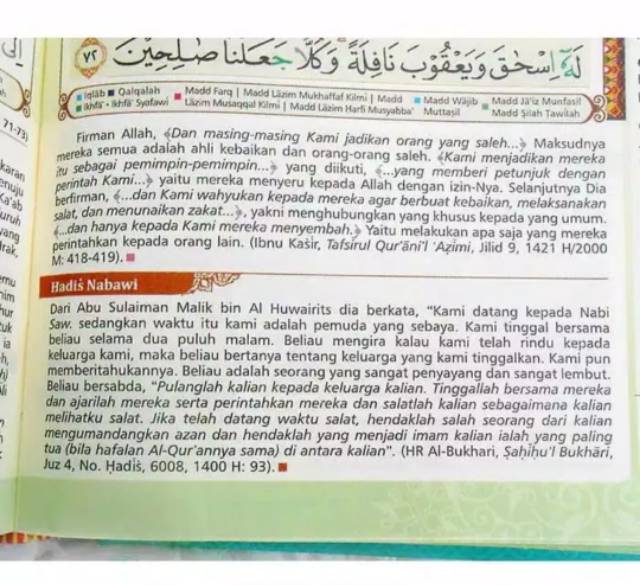 لَهُۥٓ إِسْحَٰقَ وَيَعْقُوبَ نَافِلَةً وَكُلًّا جَعَلْنَا صَٰلِحِينَ ٧٢
Iqlāb Qalqalah Madd Farq | Madd Lāzim Mukhaffaf Kilmi | Madd Madd Wājib Madd Jā'iz Munfasil
Ikhfā' - Ikhfā' Syafawi Lāzim Musaqqal Kilmi | Madd Lāzim Harfi Musyabba' Muttaṣil Madd Ṣilah Ṭawilah
Firman Allah, ﴾Dan masing-masing Kami jadikan orang yang saleh...﴿ Maksudnya
mereka semua adalah ahli kebaikan dan orang-orang saleh. ﴾Kami menjadikan mereka
itu sebagai pemimpin-pemimpin...﴿ yang diikuti, ﴾...yang memberi petunjuk dengan
perintah Kami...﴿ yaitu mereka menyeru kepada Allah dengan izin-Nya. Selanjutnya Dia
berfirman, ﴾...dan Kami wahyukan kepada mereka agar berbuat kebaikan, melaksanakan
salat, dan menunaikan zakat...﴿, yakni menghubungkan yang khusus kepada yang umum.
﴾...dan hanya kepada Kami mereka menyembah.﴿ Yaitu melakukan apa saja yang mereka
perintahkan kepada orang lain. (Ibnu Kaṡir, Tafsirul Qur'āni'l 'Aẓimi, Jilid 9, 1421 H/2000
M: 418-419).
Hadiṡ Nabawi
Dari Abu Sulaiman Malik bin Al Huwairits dia berkata, "Kami datang kepada Nabi
Saw. sedangkan waktu itu kami adalah pemuda yang sebaya. Kami tinggal bersama
beliau selama dua puluh malam. Beliau mengira kalau kami telah rindu kepada
keluarga kami, maka beliau bertanya tentang keluarga yang kami tinggalkan. Kami pun
memberitahukannya. Beliau adalah seorang yang sangat penyayang dan sangat lembut.
Beliau bersabda, "Pulanglah kalian kepada keluarga kalian. Tinggallah bersama mereka
dan ajarilah mereka serta perintahkan mereka dan salatlah kalian sebagaimana kalian
melihatku salat. Jika telah datang waktu salat, hendaklah salah seorang dari kalian
mengumandangkan azan dan hendaklah yang menjadi imam kalian ialah yang paling
tua (bila hafalan Al-Qur'annya sama) di antara kalian". (HR Al-Bukhari, Ṣaḥiḥu'l Bukhāri,
Juz 4, No. Ḥadiṡ, 6008, 1400 H: 93).